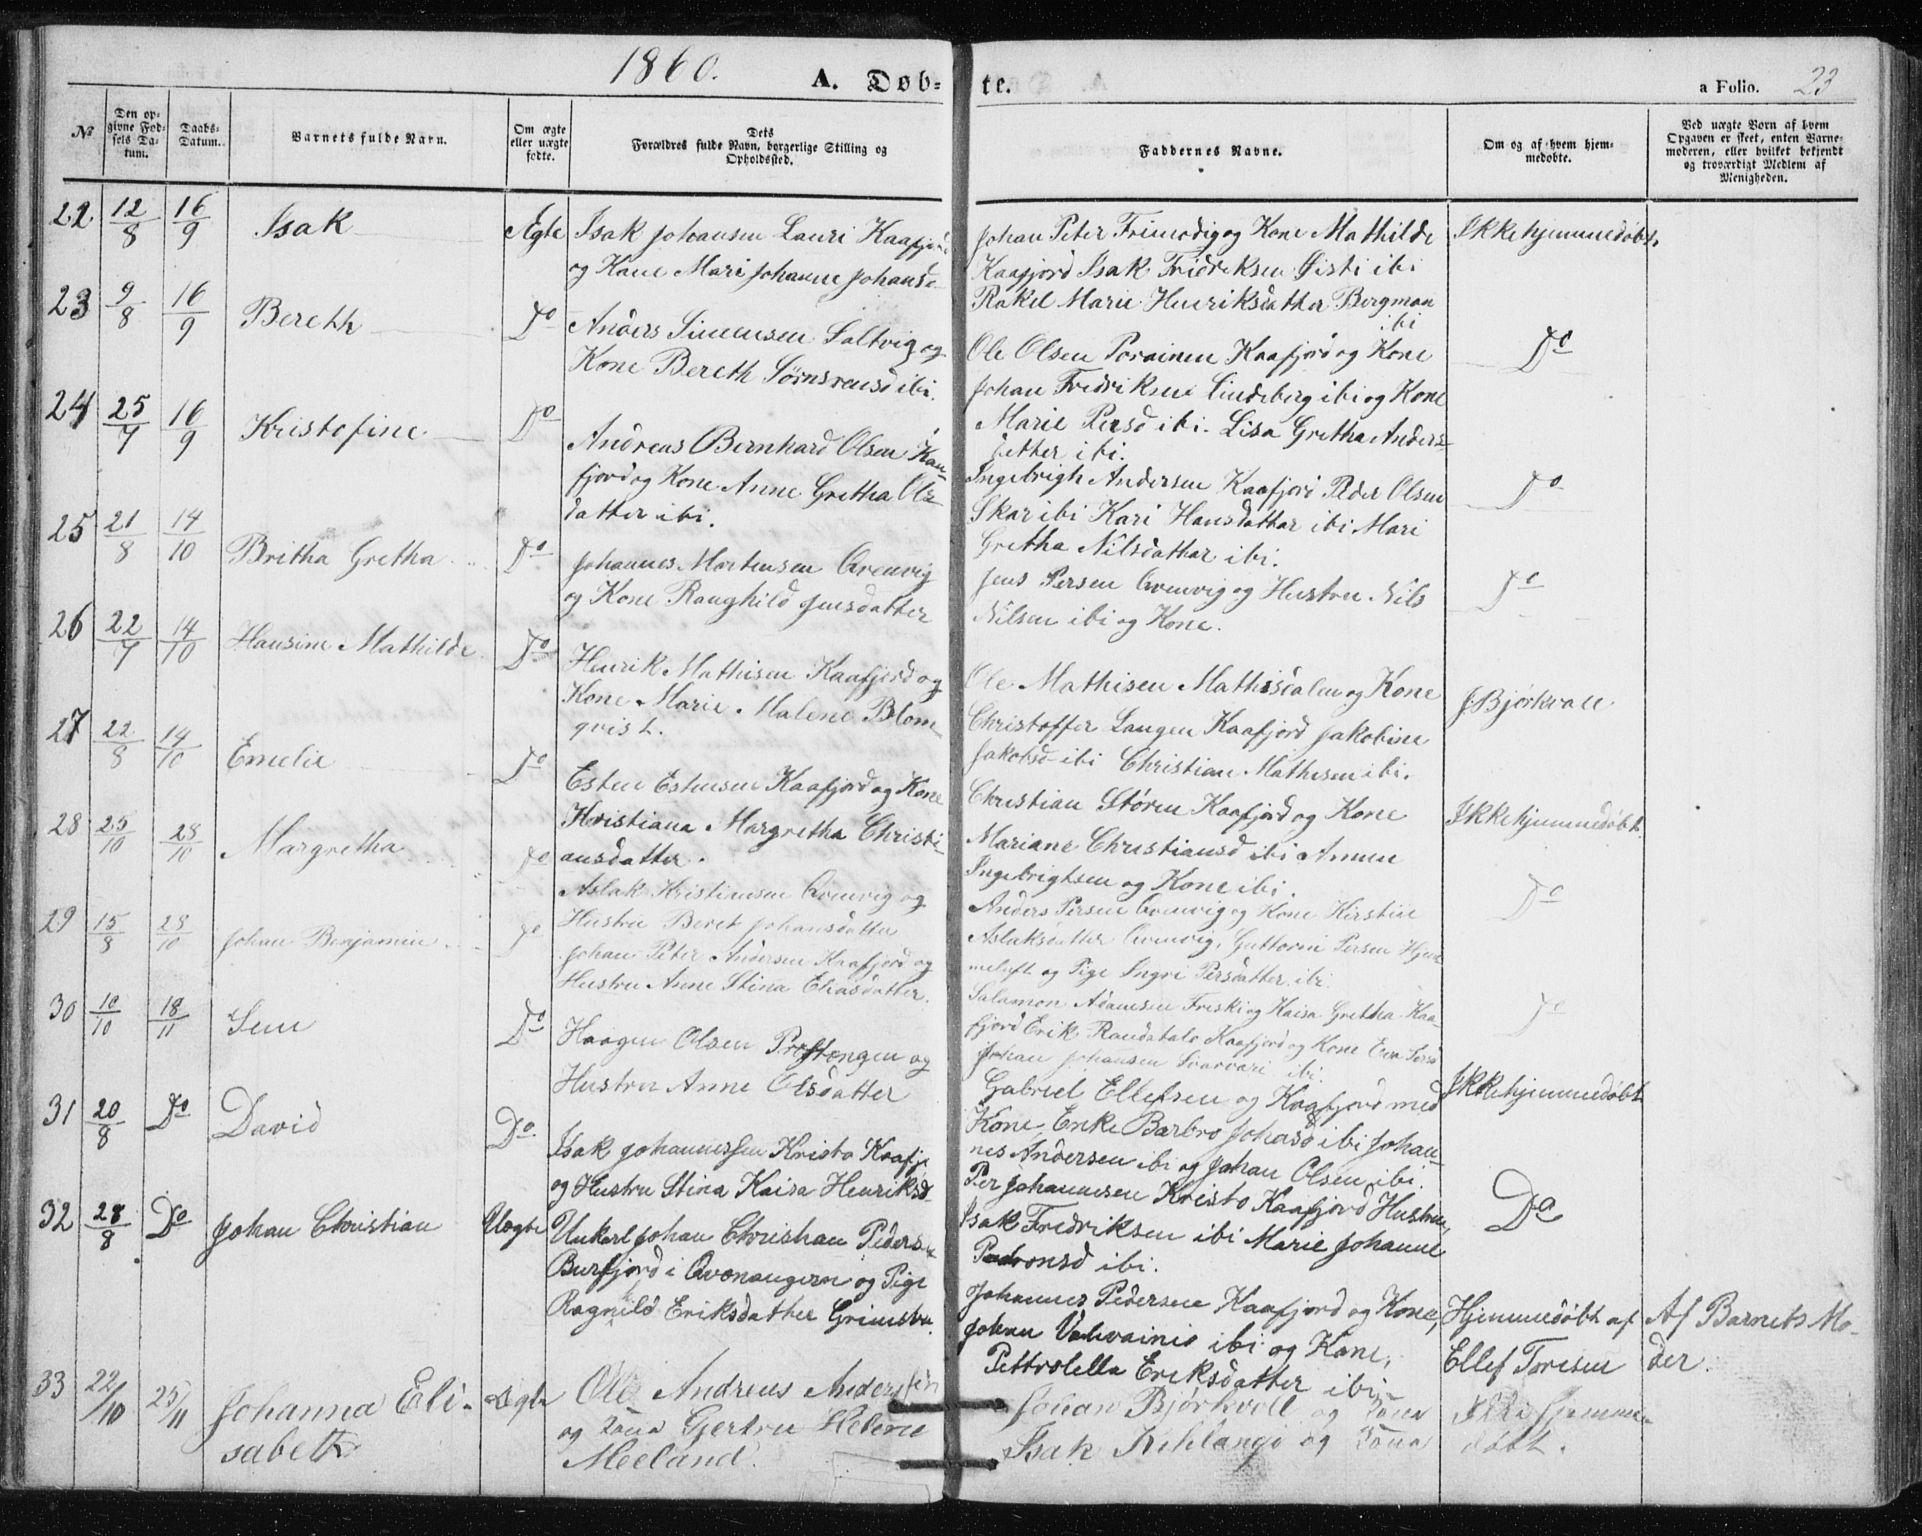 1860.
A. Døb-
te.
a Folio. 23
№
Den op-
givne Fød-
sels Da-
tum.
Daabs-
Datum.
Barnets fulde Navn.
Om ægte
eller uægte
fødte.
Dets
Forældres fulde Navn, borgerlige Stilling og
Opholdssted.
Faddernes Navne.
Om og af hvem hjem-
medøbte.
Ved uægte Børn af hvem
Opgaven er skeet, enten Barne-
moderen, eller hvilket bekjendt
og troværdigt Medlem af
Menigheden.
22 12/8 16/9 Isak Ægte
Isak Johansen Lauri Kaafjord
og Kone Mari Johanne Johansd
Johan Peter Frimodig og Kone Mathilde
Kaafjord Isak Fridriksen ibi
Rakel Marie Henriksdatter Bergman
ibi
Ikke hjemmedøbt.
23 9/8 16/9 Bereth Do
Anders Simensen Saltvig og
Kone Bereth ibi.
Ole Olsen Porainen Kaafjord og Kone
Johan Fredriksen Lindeberg ibi og Kone
Marie Persd ibi. Lisa Gretha Anders-
datter ibi.
Do
24 25/7 16/9 Kristofine Do
Andreas Bernhard Olsen Kaa-
fjord og Kone Anne Gretha Ols-
datter ibi.
Ingebrigh Andersen Kaafjord Peder Olsen
Skar ibi Kari Hansdatter ibi Mari
Gretha Nilsdatter ibi.
Do
25 21/8 14/10 Britha Gretha Do
Johannes Mortensen Qvenvig
og Kone Ranghild Jensdatter
Jens Persen Qvenvig og Hustru Nils
Nilsen ibi og Kone.
Do
26 22/7 14/10 Hansine Mathilde Do
Henrik Mathisen Kaafjord og
Kone Marie Malene Blom-
qvist.
Ole Mathisen Mathisdalen og Kone
Christoffer Langen Kaafjord Jakobine
Jakobsd ibi Christian Mathesen ibi.
J. Bjørkvall
27 22/8 14/10 Emelie Do
Esten Estensen Kaafjord og Kone
Kristiana Margretha Christi-
ansdatter.
Christian Støren Kaafjord og Kone
Mariane Christiansd ibi Ammon
Ingebrigtsen og Kone ibi.
Ikke hjemmedøbt.
28 25/10 28/10 Margretha Do
Aslak Kristiansen Qvenvig og
Hustru Beret Johansdatter
Anders Persen Qvenvig og Kone Kirstine
Aslaksdatter Qvenvig, Guttorm Persen Hjem-
meluft og Pige Ingri Persdatter ibi.
Do
29 15/8 28/10 Johan Benjamin Do
Johan Peter Andersen Kaafjord og
Hustru Anne Stina Eliasdatter.
Salamon Adamsen Friski og Kaisa Gretha Kaa-
fjord Erik Randatalo Kaafjord og Kone Eva Persd
Johan Johansen ibi.
Do
30 10/10 18/11 Do
Haagen Olsen Prestengen og
Hustru Anne Olsdatter
Gabriel Ellefsen og Kaafjord med
Kone, Enke Barbro Johansd ibi Johan-
nes Andersen ibi og Johan Olsen ibi.
Ikke hjemmedøbt
31 20/8 Do David Do
Isak Johannessen Kristo Kaafj
og Hustru Stina Kaisa Henriksd
Per Johannesen Kristo Kaafjord Hustru,
Isak Fredriksen ibi Marie Johanne
ibi.
Do
32 28/8 Do Johan Christian Uægte
Unkarl Johan Christian Pedersen
Burfjord i Qvænangen og Pige
Ragnild Eriksdatter
Johannes Pedersen Kaafjord og Kone,
Johan ibi og Kone,
Pettrolella Eriksdatter ibi
Hjemmedøbt af
Ellef Toresen
Af Barnets Mo-
der
33 22/10 25/11 Johanna Eli-
sabeth
Ægte
Ole Andreas Andersen
og Kona Gjertru Helene
Meeland.
Johan Bjørkvoll og Kona
Isak Kihlangi og Kona
Ikke Hjemme-
døbt.